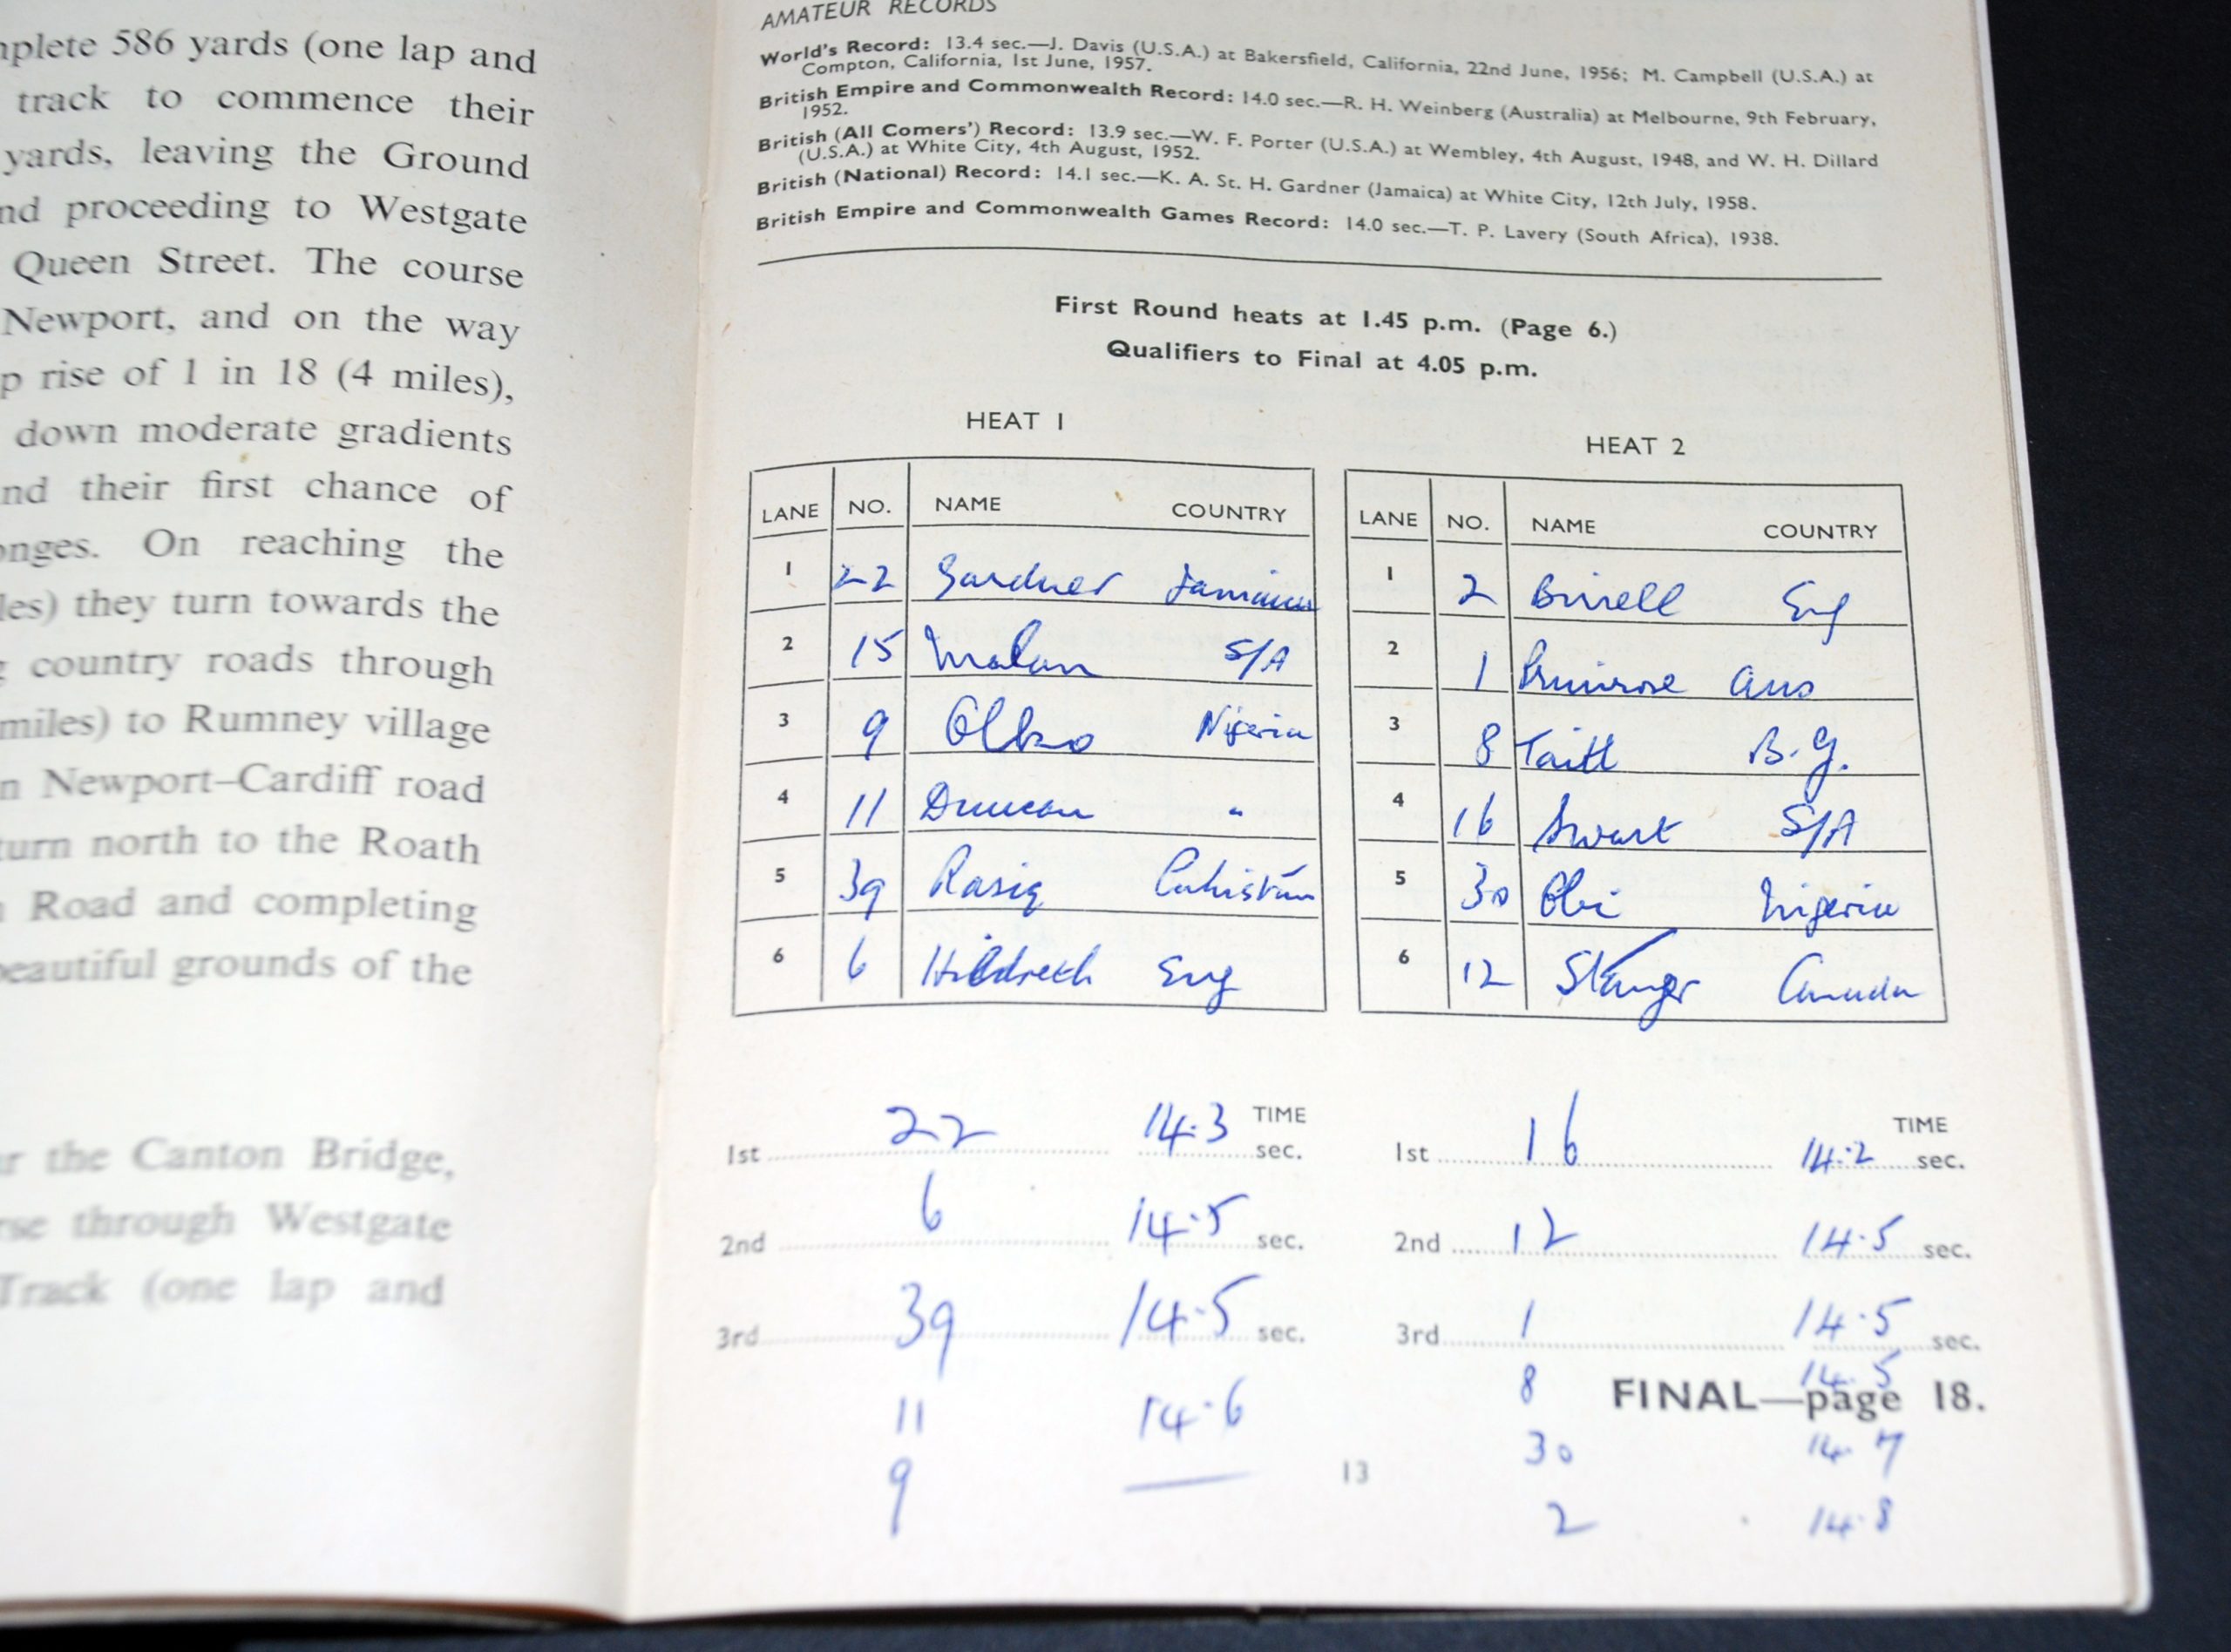 mplete 586 yards (one lap and
track to commence their
yards, leaving the Ground
nd proceeding to Westgate
Queen Street. The course
Newport, and on the way
p rise of 1 in 18 (4 miles),
down moderate gradients
nd their first chance of
onges. On reaching the
les) they turn towards the
g country roads through
miles) to Rumney village
n Newport–Cardiff road
turn north to the Roath
n Road and completing
beautiful grounds of the
ar the Canton Bridge,
rse through Westgate
Track (one lap and
AMATEUR RECORDS
World's Record: 13.4 sec.—J. Davis (U.S.A.) at Bakersfield, California, 22nd June, 1956; M. Campbell (U.S.A.) at
Compton, California, 1st June, 1957.
British Empire and Commonwealth Record: 14.0 sec.—R. H. Weinberg (Australia) at Melbourne, 9th February,
1952.
British (All Comers') Record: 13.9 sec.—W. F. Porter (U.S.A.) at Wembley, 4th August, 1948, and W. H. Dillard
(U.S.A.) at White City, 4th August, 1952.
British (National) Record: 14.1 sec.—K. A. St. H. Gardner (Jamaica) at White City, 12th July, 1958.
British Empire and Commonwealth Games Record: 14.0 sec.—T. P. Lavery (South Africa), 1938.
First Round heats at 1.45 p.m. (Page 6.)
Qualifiers to Final at 4.05 p.m.
HEAT 1
LANE NO. NAME COUNTRY
1 22 Gardner Jamaica
2 15 Malan S/A
3 9 Nigeria
4 11 Duncan "
5 39 Rasiq Pakistan
6 6 Hildreth Eng
1st 22 14.3 TIME sec.
2nd 6 14.5 sec.
3rd 39 14.5 sec.
11 14.6
9 —
HEAT 2
LANE NO. NAME COUNTRY
1 2 Birrell Eng
2 1 Primrose Aus
3 8 Taitt B.G.
4 16 Swart S/A
5 30 Obi Nigeria
6 12 Stanger Canada
1st 16 14.2 TIME sec.
2nd 12 14.5 sec.
3rd 1 14.5 sec.
8 14.5
FINAL—page 18.
30 14.7
2 14.8
13